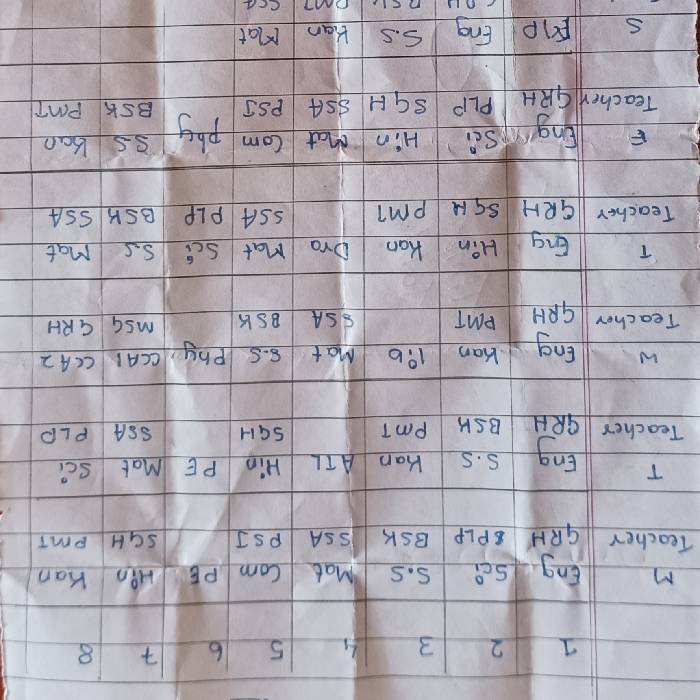 1 2 3 4 5 6 7 8
M Eng Sci S.S Mat Com PE Hin Kan
Teacher GRH PLP BSK SSA PSJ SGH PMT
T Eng S.S Kan ATL Hin PE Mat Sci
Teacher GRH BSK PMT SGH SSA PLP
W Eng Kan lib Mat S.S Phy CCA1 CCA2
Teacher GRH PMT SSA BSK MSG GRH
T Eng Hin Kan Dra Mat Sci S.S Mat
Teacher GRH SGH PMT SSA PLP BSK SSA
F Eng Sci Hin Mat Com phy S.S Kan
Teacher GRH PLP SGH SSA PSJ BSK PMT
S Eng S.S Kan Mat
GRH BSK PMT SSA